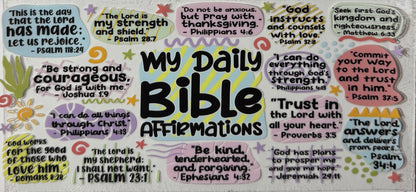 This is the
day that
the Lord
has made;
let us rejoice."
- Psalm 118:24
"The Lord is
my strength
and shield."
- Psalm 28:7
"Do not be anxious,
but pray with
thanksgiving."
- Philippians 4:6
"God
instructs
and counsels
with love."
- Psalm 32:8
Seek first God's
kingdom and
righteousness
- Matthew 6:33
"Be strong and
courageous,
for God is with me."
- Joshua 1:9
MY DAILY
Bible
AFFIRMATIONS
"I can do
everything
through God's
strength."
"Commit
your way
to the Lord
and trust
in him."
Psalm 37:5
"I can do all things
through Christ."
- Philippians 4:13
"Trust in
the Lord with
all your heart."
- Proverbs 3:5
"God works
for the good
of those who
love him."
- Romans 8:28
"The Lord is
my shepherd;
I shall not want."
- PSALM 23:1
"Be kind,
tenderhearted,
and forgiving."
- Ephesians 4:32
"God has plans
to prosper me
and give me hope."
- Jeremiah 29:11
The Lord
answers
and delivers
from fear.
Psalm
34:4